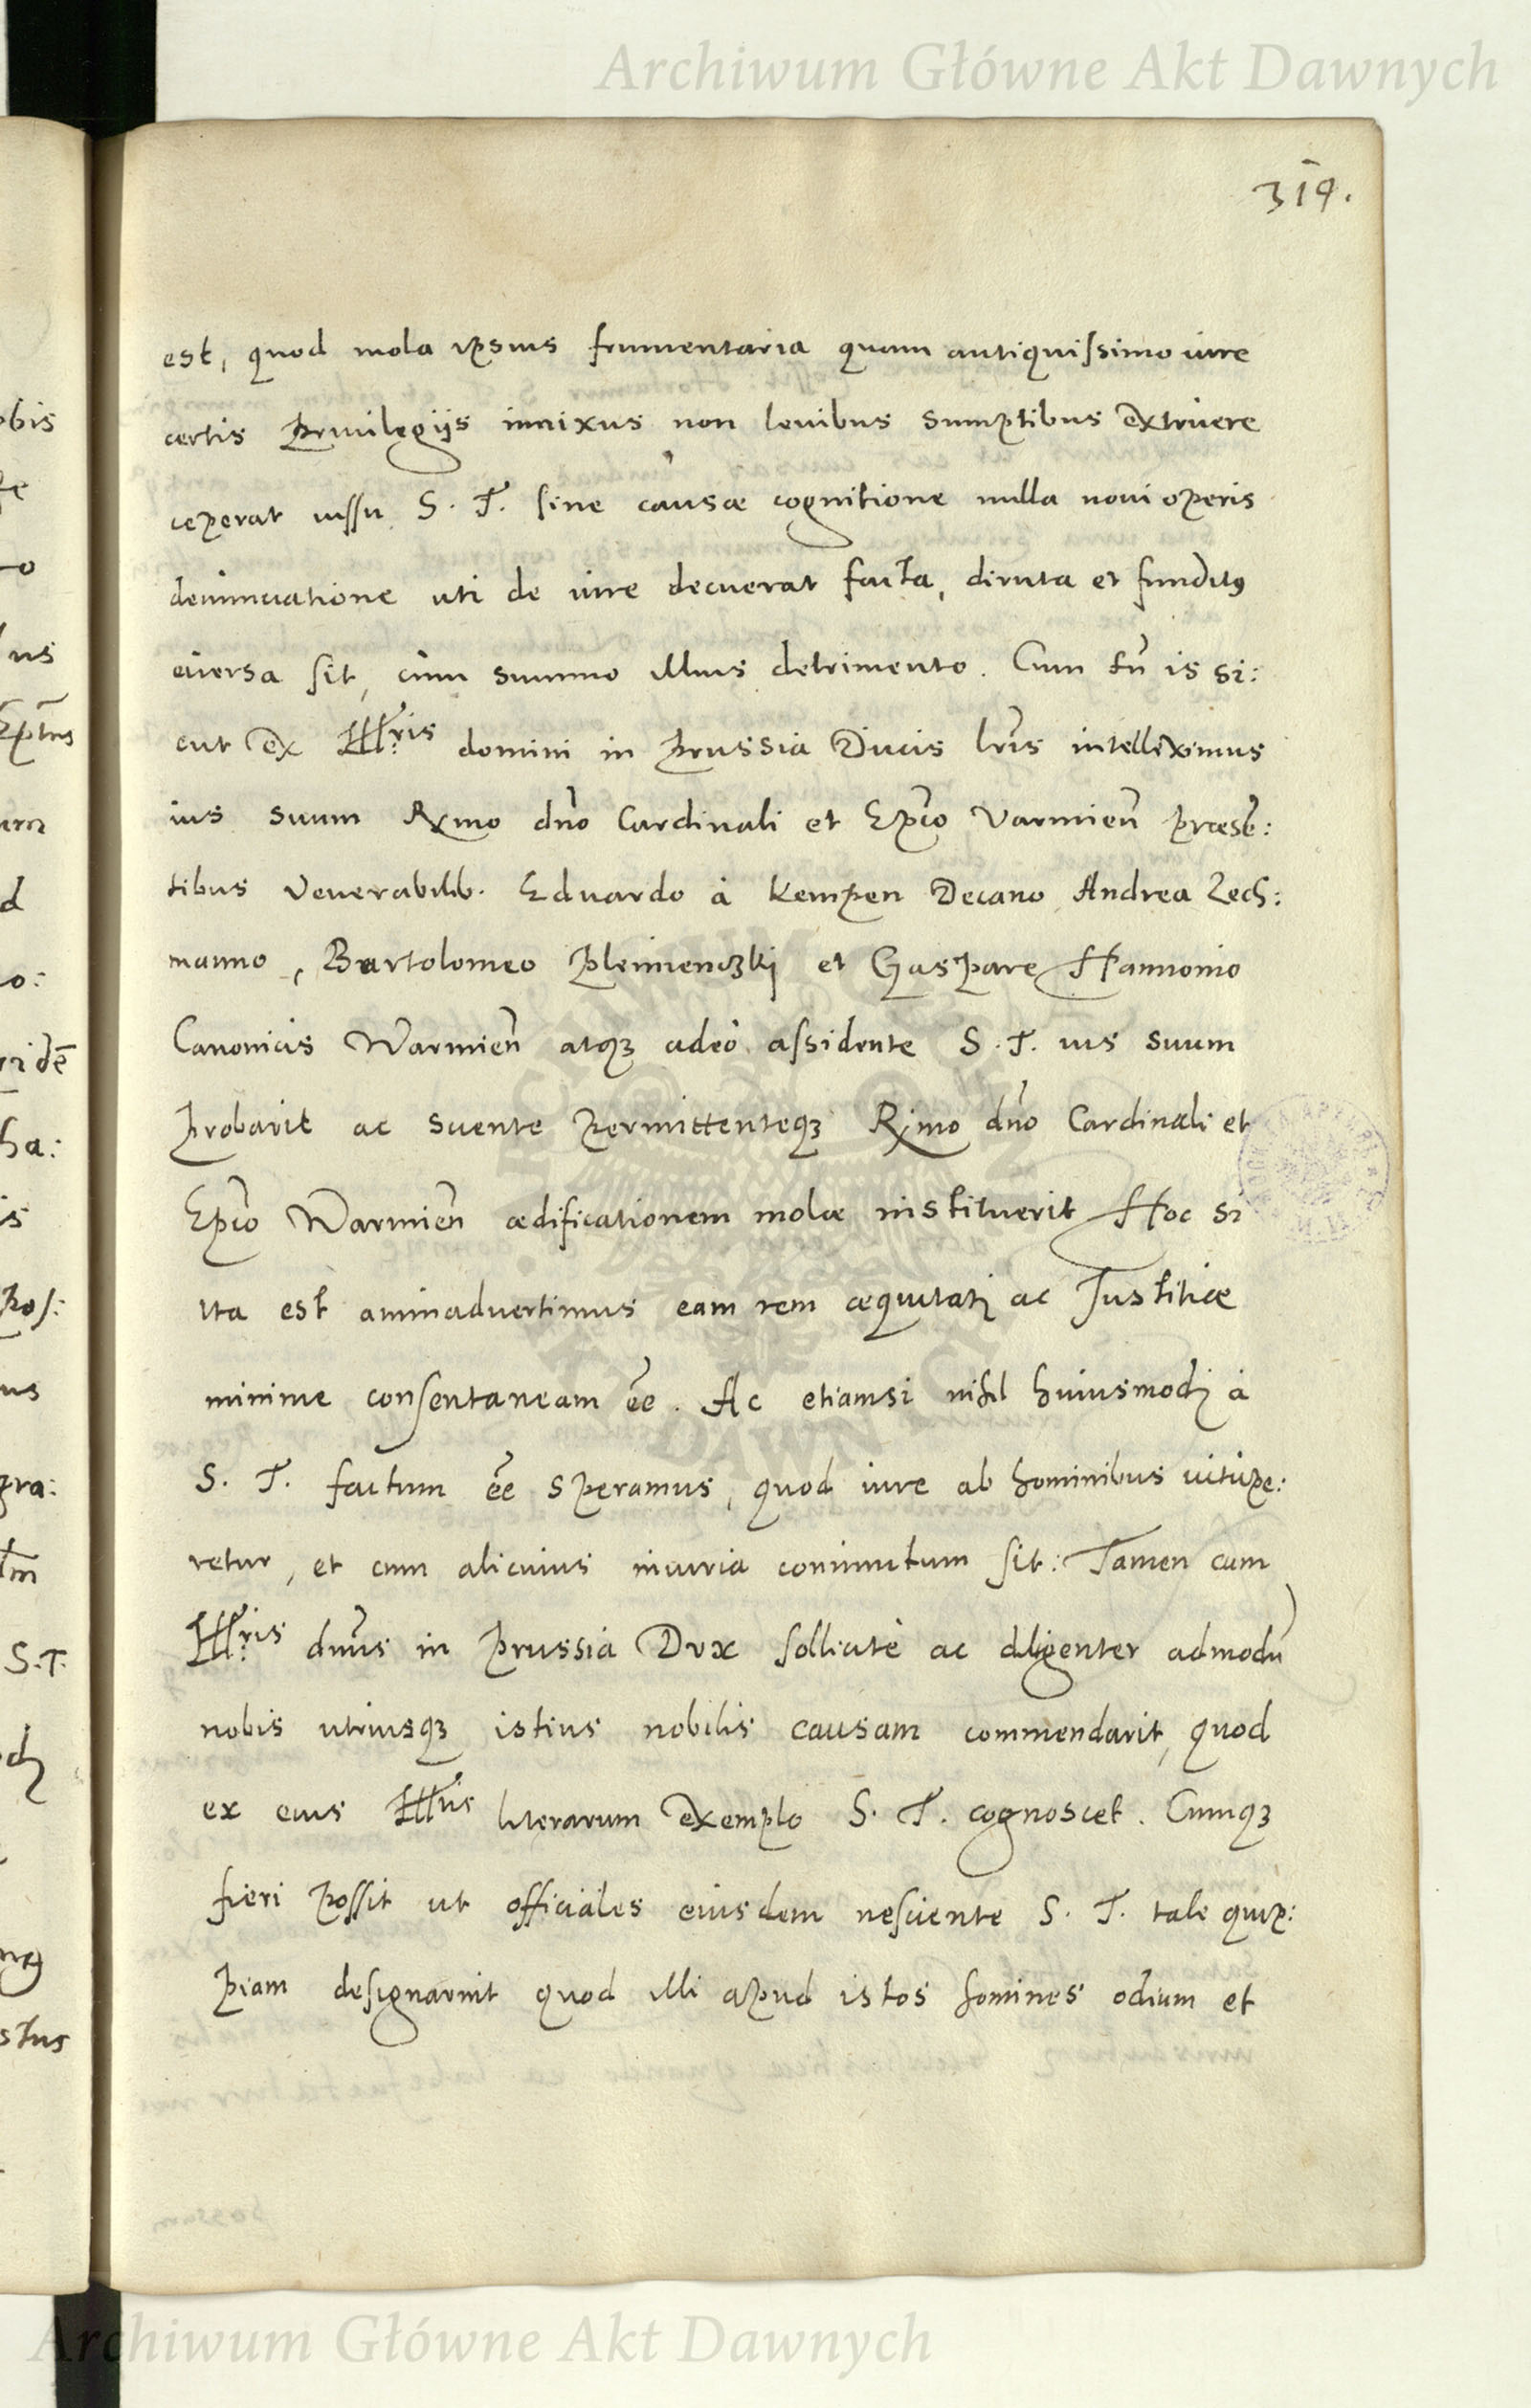 Archiwum Główne Akt Dawnych
319.
est, quod mola ipsius frumentaria quam antiquissimo iure
certis Priuilegijs innixus non leuibus sumptibus extruere
ceperat iussu S. T. sine causæ cognitione nulla noui operis
denunciatione uti de iure decuerat facta, diruta et funditus
euersa sit, cum summo illius detrimento. Cum tñ is si:
cut ex Illris domini in Prussia Ducis lris intelleximus
ius suum Rxmo dno Cardinali et Epco Varmien præsen:
tibus Venerabilib. Eduardo à Kempen Decano Andrea Zech:
manno, Bartolomeo Pleimenczki et Gaspare Hannonio
Canonicis Warmien atque adeo assidente S. T. ius suum
probarit ac sciente permittenteque Rxmo dno Cardinali et
Epco Warmien ædificationem molæ instituerit Hoc si
ita est animaduertimus eam rem æquitati ac Justitiæ
minime consentaneam ee. Ac etiamsi nihil huiusmodi à
S. T. factum ee speramus, quod iure ab hominibus uitupe:
retur, et cum alicuius iniuria coniunctum sit: Tamen cum
Illris dnus in Prussia Dux sollicite ac diligenter admodu
nobis utriusque istius nobilis causam commendarit, quod
ex eius Illris literarum exemplo S. T. cognoscet. Cumque
fieri possit ut officiales eiusdem nesciente S. T. tale quip:
piam designarint quod illi apud istos homines odium et
Archiwum Główne Akt Dawnych